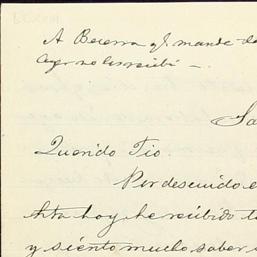 A Becerra qe. mande de
Ayer no los recibí —.
Sa
Querido Tio.
Por descuido e
hta hoy he recibido t
y siento mucho saber